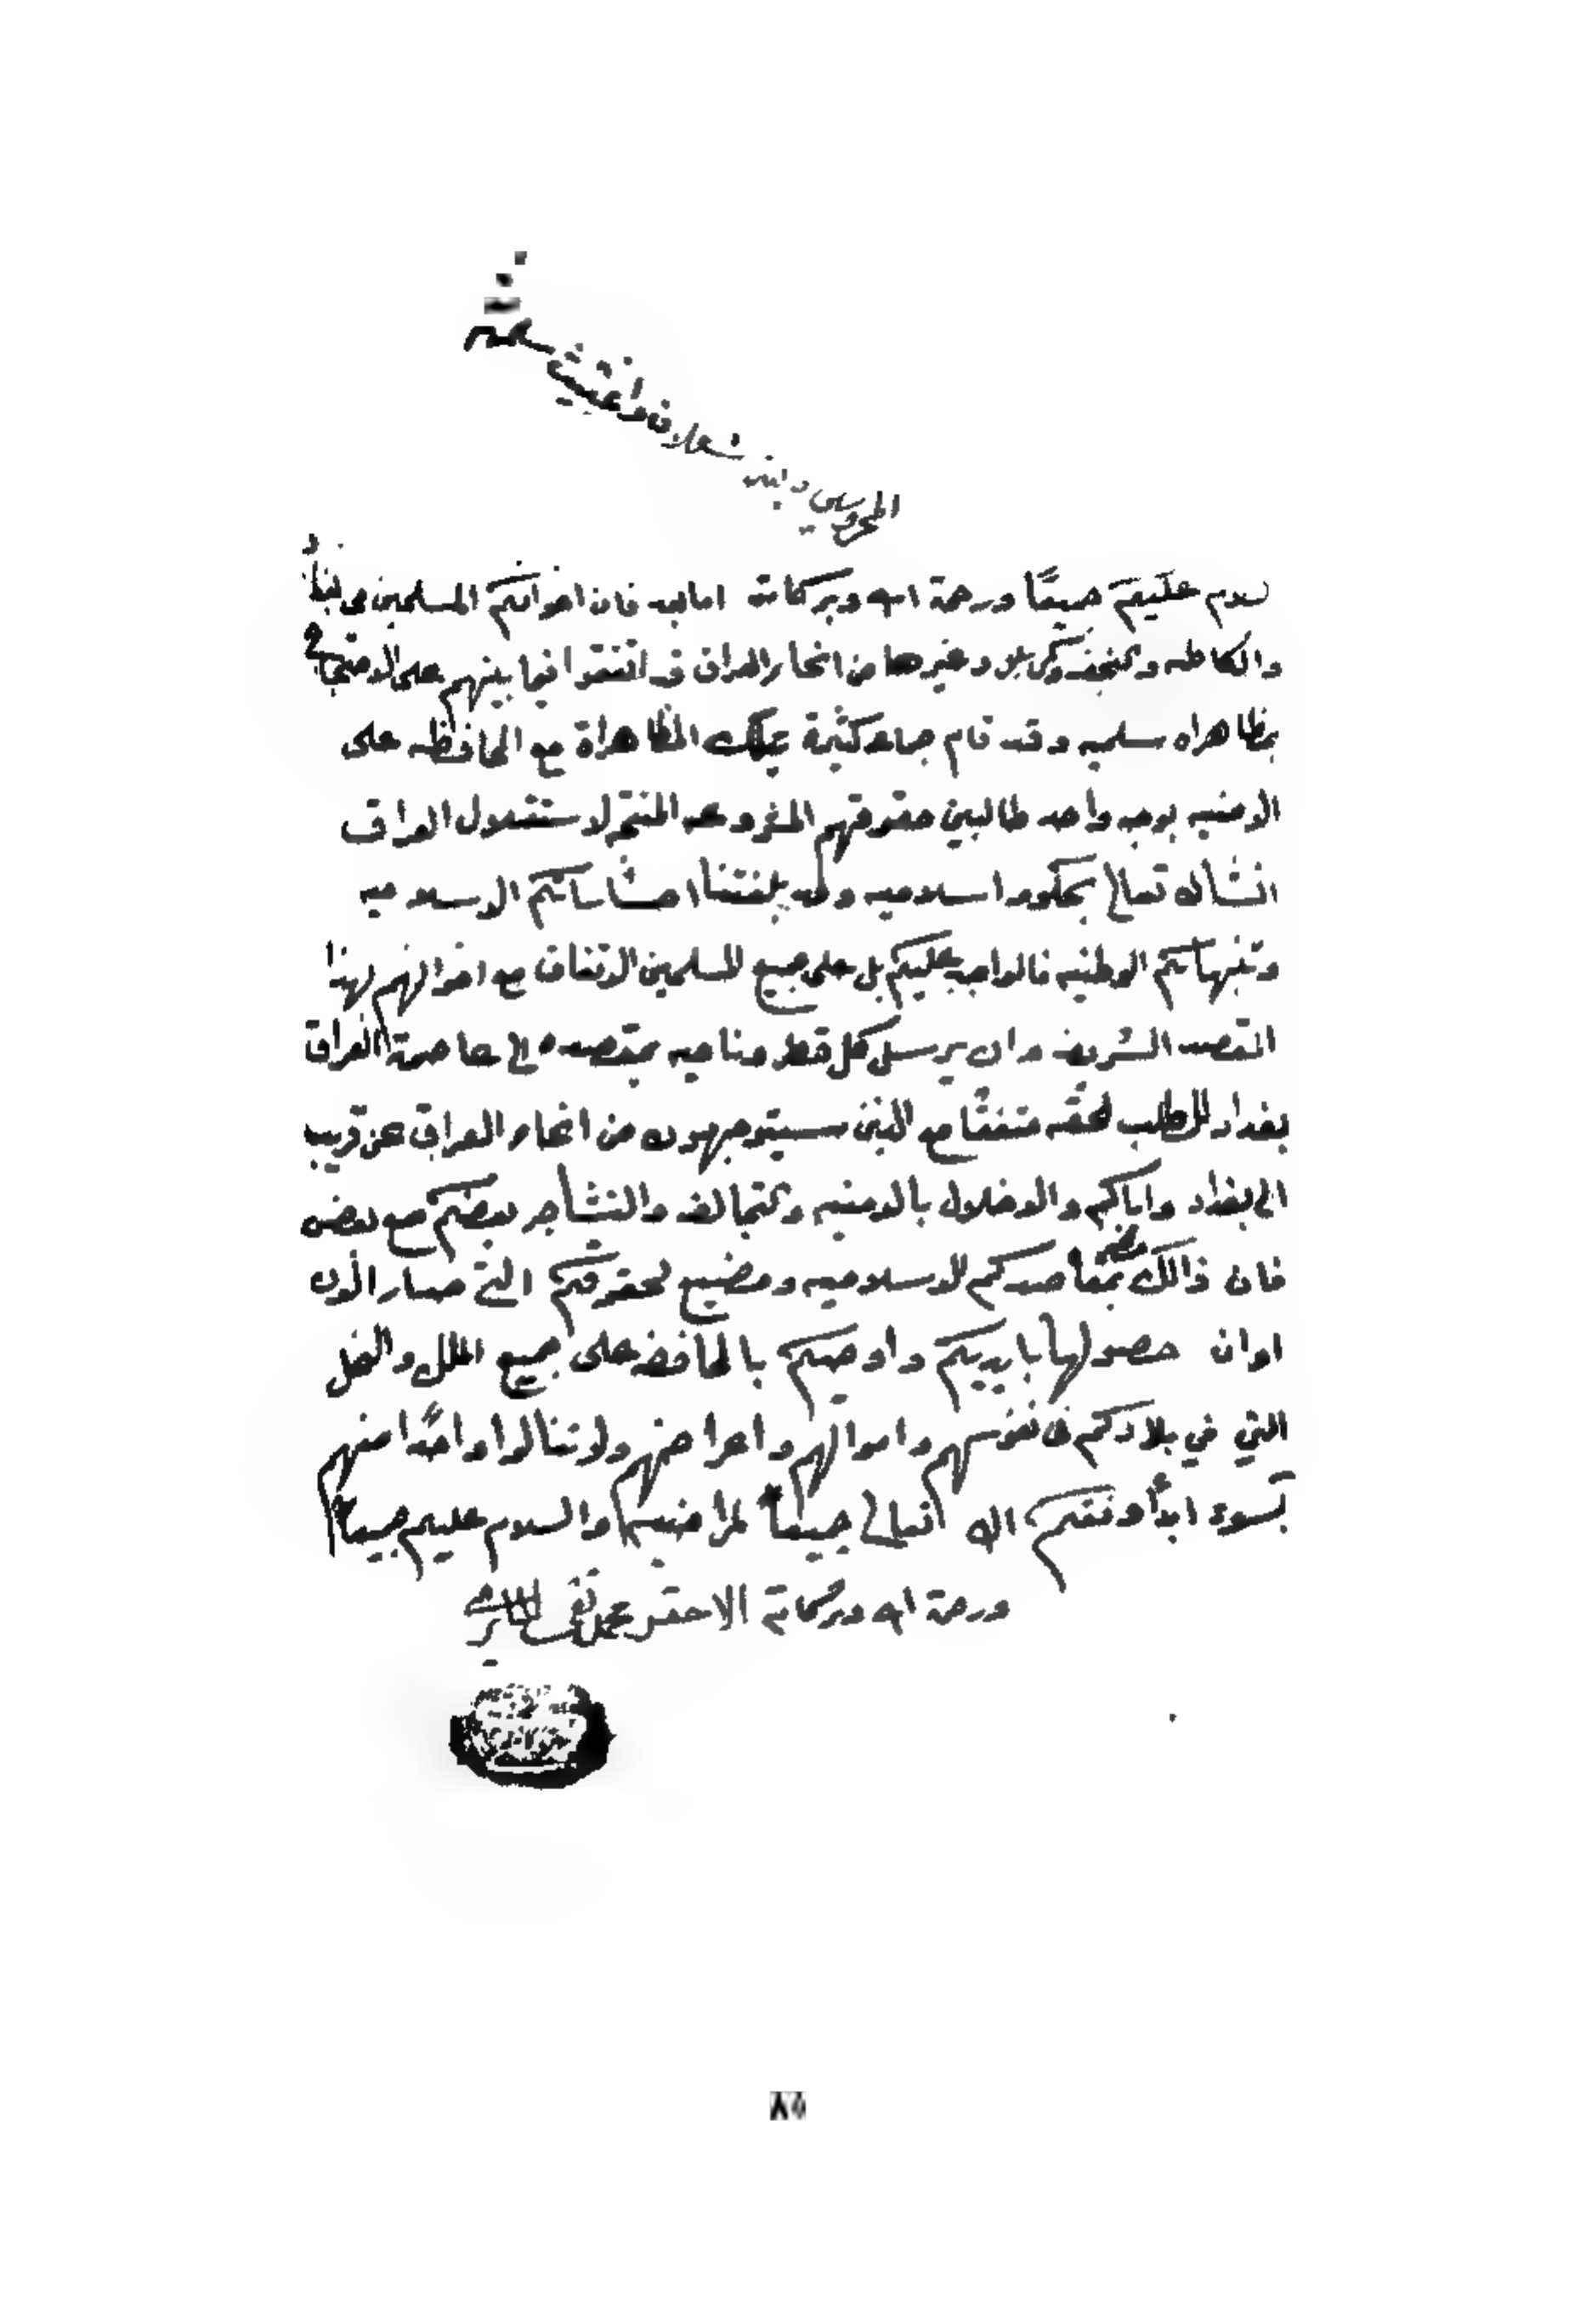 المحروسي وابنه شعلان واغثيث سلمهم
سلام عليكم جميعًا ورحمة الله وبركاته اما بعد فان اخوانكم المسلمين في بغداد
والكاظميه والنجف وكربلا وغيرها من انحاء العراق قد اتفقوا فيما بينهم على الاجتماع
بمظاهراه سلميه وقد قام جماعه كثيرة بتلك المظاهراة مع المحافظه على
الامنيه بوجه واحد طالبين حقوقهم المشروعه المنتجه لاستقلال العراق
انشاالله تعالى بحكومه اسلاميه وقد بلغتنا احساساتكم الاسلاميه
وتنبهاتكم الوطنيه فالواجب عليكم بل على جميع المسلمين الاتفاق مع اخوانهم لهذا
القصد الشريف وان يرسل كل قطر وناحيه مقصده الى عاصمة العراق
بغداد للطلب لحقه متفقًا مع الذين سيتوجهون من انحاء العراق عن قريب
الى بغداد واياكم والاخلال بالامنيه والتخالف والتشاجر بعضكم مع بعض
فان ذالك مضر بمقاصدكم الاسلاميه ومضيع لحقوقكم التي صار الان
اوان حصولها بايديكم واوصيكم بالمحافظه على جميع الملل والنحل
التي في بلادكم في نفوسهم واموالهم واعراضهم ولا تنالوا واحدًا منهم
بسوء ابدًا وفقكم الله تعالى جميعاً لمراضيه والسلام عليكم جميعاً
ورحمة الله وبركاته الاحقر محمد تقي الحائري
٨٧